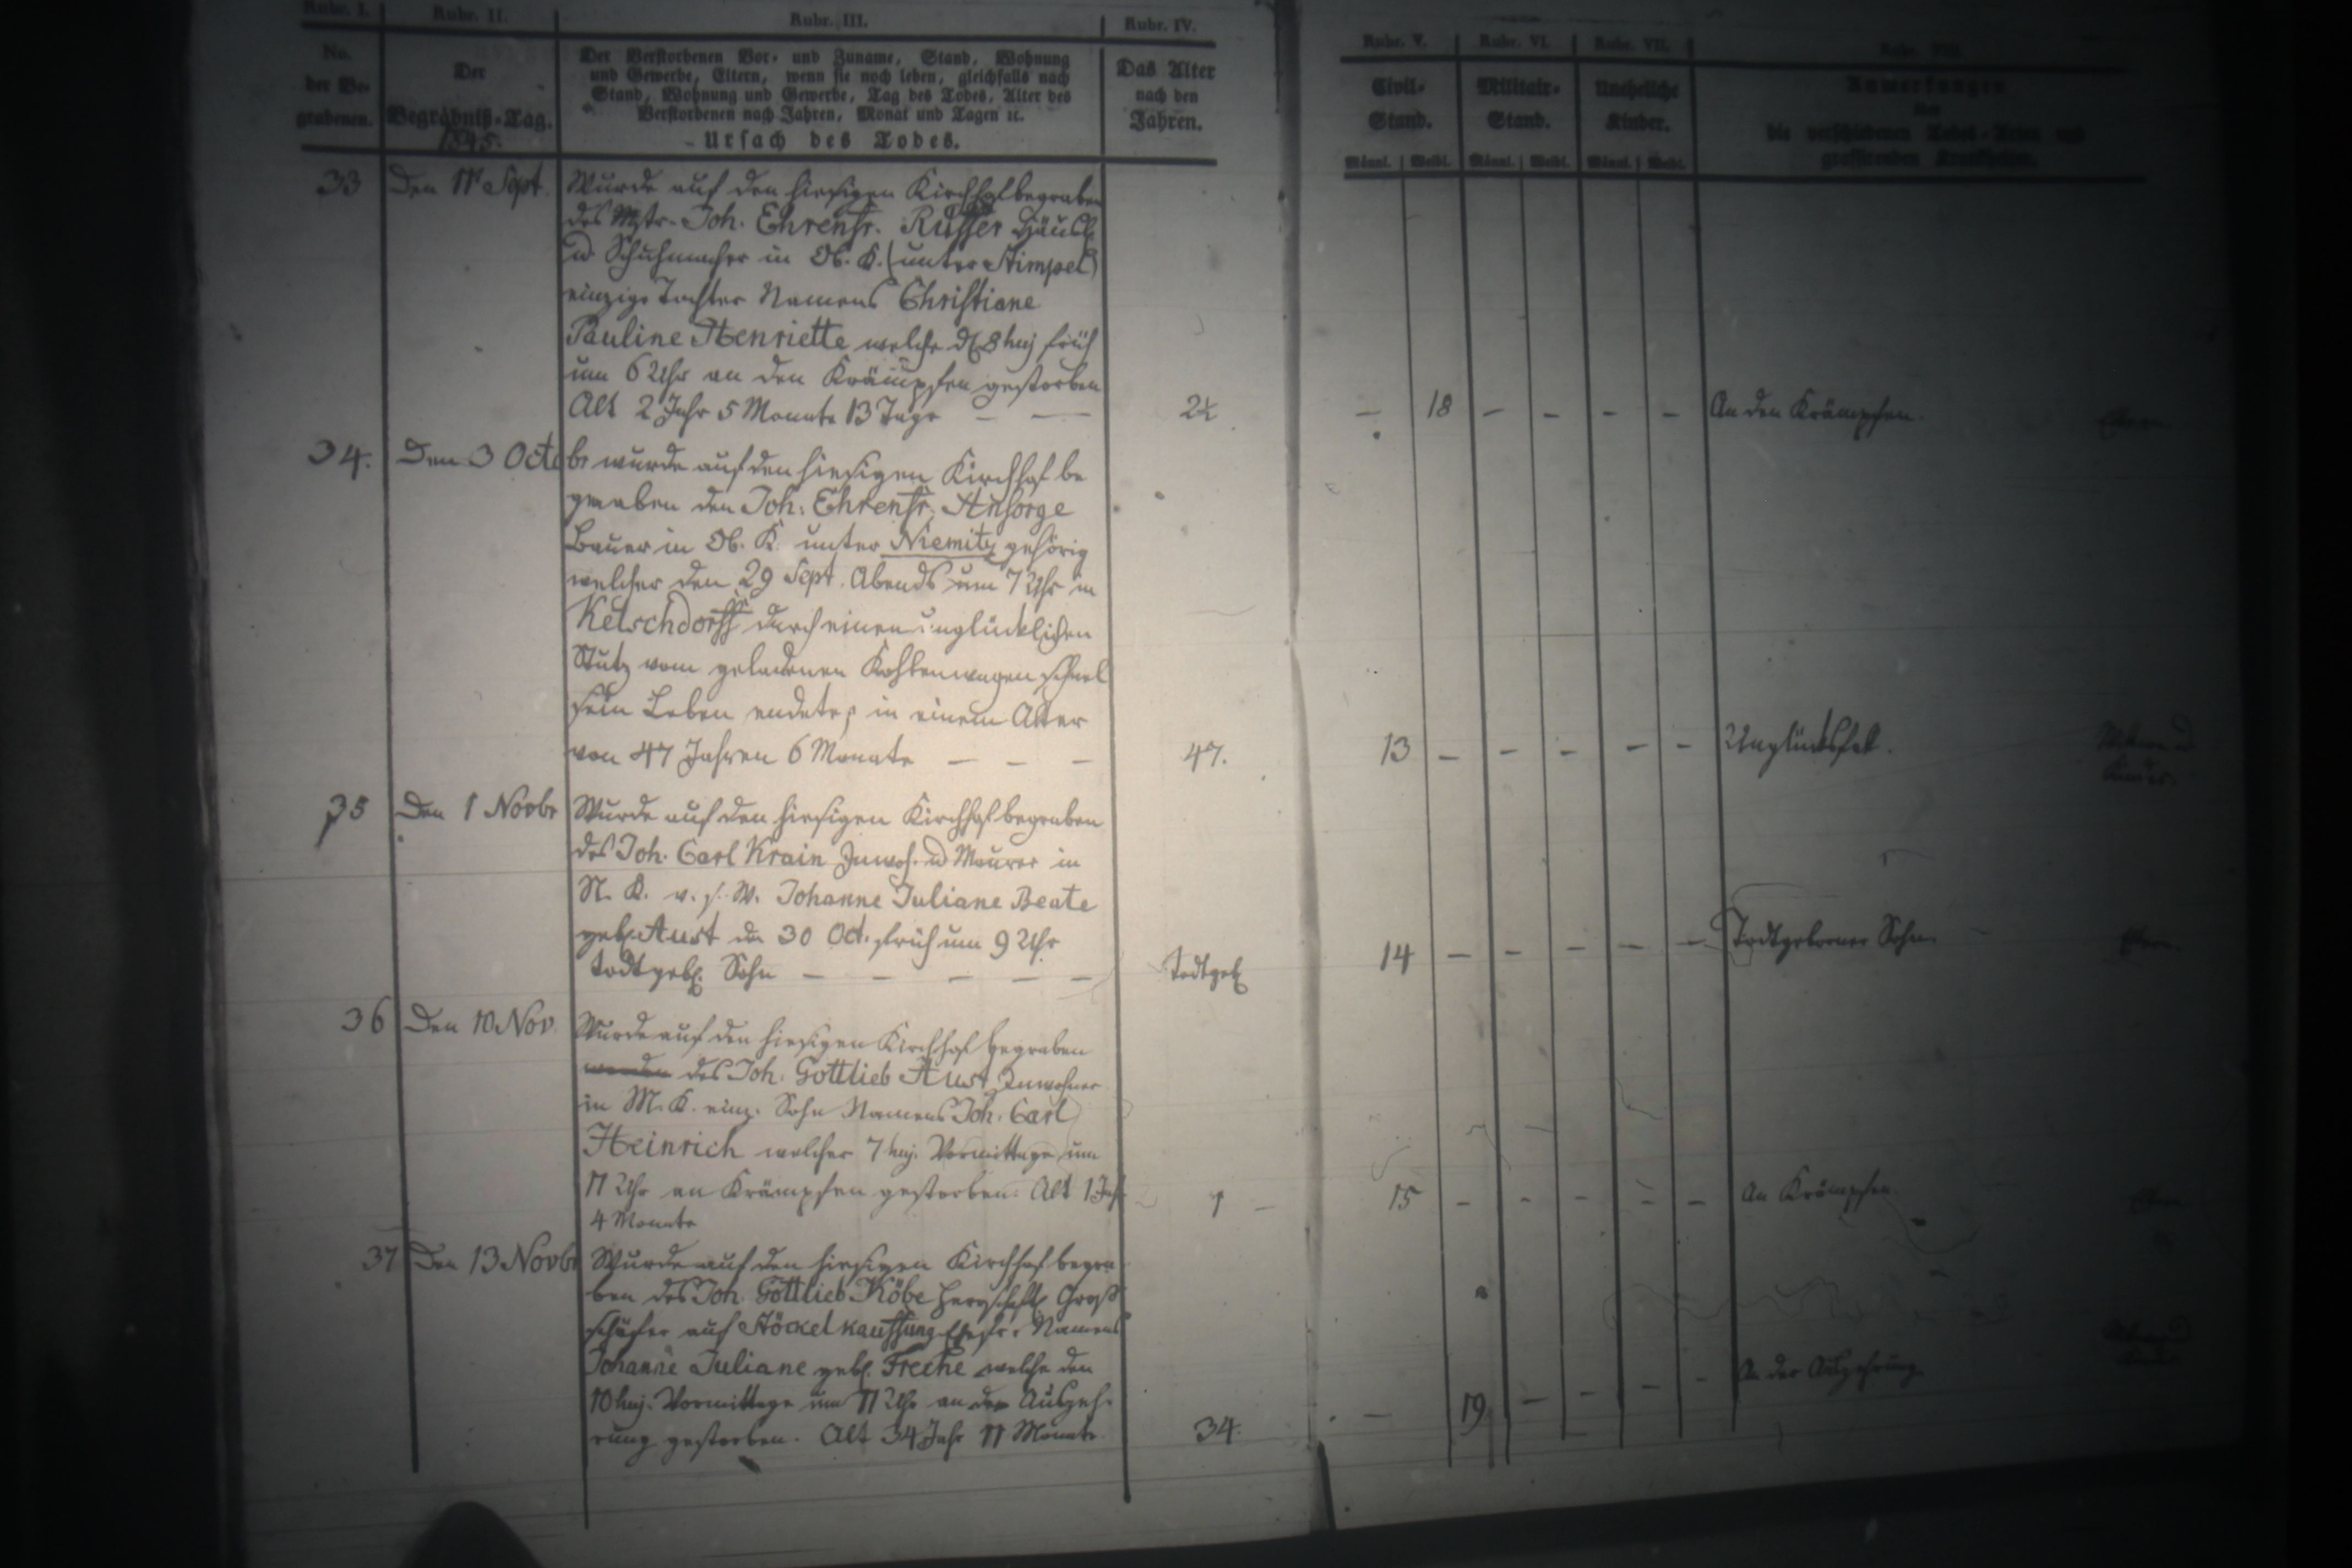 Rubr. I. Rubr. II. Rubr. III. Rubr. IV. Rubr. V. Rubr. VI. Rubr. VII. Rubr. VIII.
No.
der Be-
grabenen.
Der
Begräbniß-Tag.
1845.
Der Verstorbenen Vor- und Zuname, Stand, Wohnung
und Gewerbe, Eltern, wenn sie noch leben, gleichfalls nach
Stand, Wohnung und Gewerbe, Tag des Todes, Alter des
Verstorbenen nach Jahren, Monat und Tagen ꝛc.
Ursach des Todes.
Das Alter
nach den
Jahren.
Civil-
Stand.
Militair-
Stand.
Uneheliche
Kinder.
Anmerkungen
über
die verschiedenen Todes-Arten und
grassirenden Krankheiten.
Männl. Weibl. Männl. Weibl. Männl. Weibl.
33 Den 11 Sept. Wurde auf den hiesigen Kirchhof begraben
des Mstr. Joh. Ehrenfr. Rüffer Häusl.
u Schuhmacher in Ob. K. (unter Stimpel)
einzige Tochter Namens Christiane
Pauline Henriette welche d. 8 huj früh
um 6 Uhr an den Krämpfen gestorben
Alt 2 Jahr 5 Monate 13 Tage — —
2½ — 18 — — — — An den Krämpfen.
34. Den 3 Octobr wurde auf den hiesigen Kirchhof be
graben den Joh: Ehrenfr. Ansorge
Bauer in Ob. K. unter Niemitz gehörig
welcher den 29 Sept. Abends um 7 Uhr in
Ketschdorff durch einen unglücklichen
Stutz vom geladenen Kohlenwagen schnel
sein Leben endete, in einem Alter
von 47 Jahren 6 Monate — — —
47. 13 — — — — — Unglücksfall.
35 Den 1 Novbr Wurde auf den hiesigen Kirchhof begraben
des Joh. Carl Krain Inwoh. u Maurer in
N. K. v. s. W. Johanne Juliane Beate
geb. Aust den 30 Oct. früh um 9 Uhr
todtgeb. Sohn — — — — —
Todtgeb 14 — — — — — Todtgeborner Sohn
36 Den 10 Nov. Wurde auf den hiesigen Kirchhof begraben
worden des Joh: Gottlieb Aust Inwohner
in M. K. einz. Sohn Namens Joh. Carl
Heinrich welcher 7 huj. Vormittage um
11 Uhr an Krämpfen gestorben. Alt 1 Jah.
4 Monate
1 — 15 — — — — — An Krämpfen.
37 Den 13 Novbr Wurde auf den hiesigen Kirchhof begra
ben des Joh. Gottlieb Köbe Groß
schäfer auf Stöckel kauffung Ehefr. Namens
Johanne Juliane geb. Freche welche den
10 huj. Vormittage um 11 Uhr an der Auszeh-
rung gestorben. Alt 34 Jahr 11 Monate.
34. — 19. — — — — An der Auszehrung